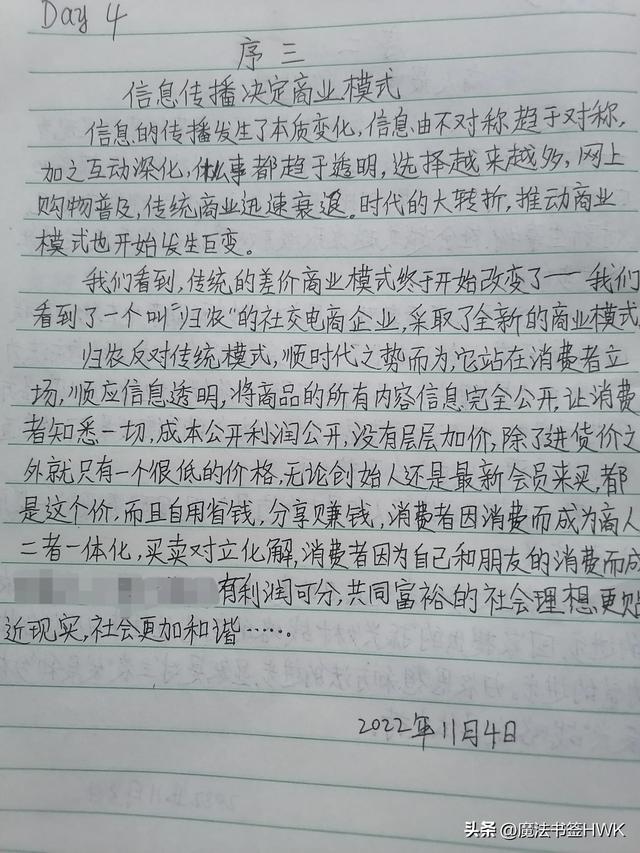 Day 4
序三
信息传播决定商业模式
信息的传播发生了本质变化,信息由不对称趋于对称,
加之互动深化,什么事都趋于透明,选择越来越多,网上
购物普及,传统商业迅速衰退。时代的大转折,推动商业
模式也开始发生巨变。
我们看到,传统的差价商业模式终于开始改变了——我们
看到了一个叫“归农”的社交电商企业,采取了全新的商业模式
归农反对传统模式,顺时代之势而为,它站在消费者立
场,顺应信息透明,将商品的所有内容信息完全公开,让消费
者知悉一切,成本公开利润公开,没有层层加价,除了进货价之
外就只有一个很低的价格,无论创始人还是最新会员来买,都
是这个价,而且自用省钱,分享赚钱,消费者因消费而成为商人
二者一体化,买卖对立化解,消费者因为自己和朋友的消费而成
有利润可分,共同富裕的社会理想更贴
近现实,社会更加和谐……。
2022年11月4日
头条 @魔法书签HWK